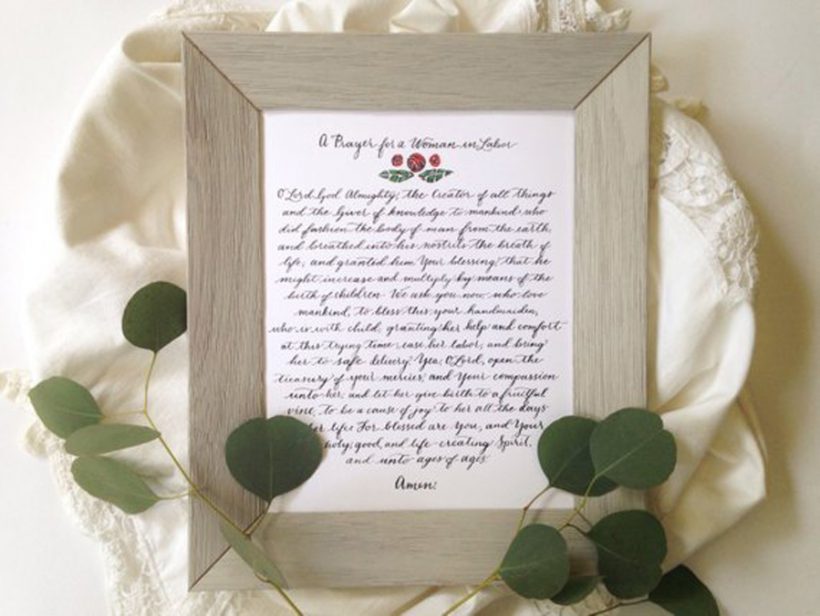 A Prayer for a Woman in Labor
O Lord God Almighty, the Creator of all things
and the Giver of knowledge to mankind, who
did fashion the body of man from the earth,
and breathed into his nostrils the breath of
life, and granted him Your blessing, that he
might increase and multiply by means of the
birth of children. We ask you now, who love
mankind, to bless this your handmaiden,
who is with child, granting her help and comfort
at this trying time, ease her labor, and bring
her to safe delivery. Yea, O Lord, open the
treasury of your mercies, and Your compassion
unto her, and let her give birth to a fruitful
vine, to be a cause of joy to her all the days
her life. For blessed are you, and Your
holy, good, and life-creating Spirit,
and unto ages of ages.
Amen.